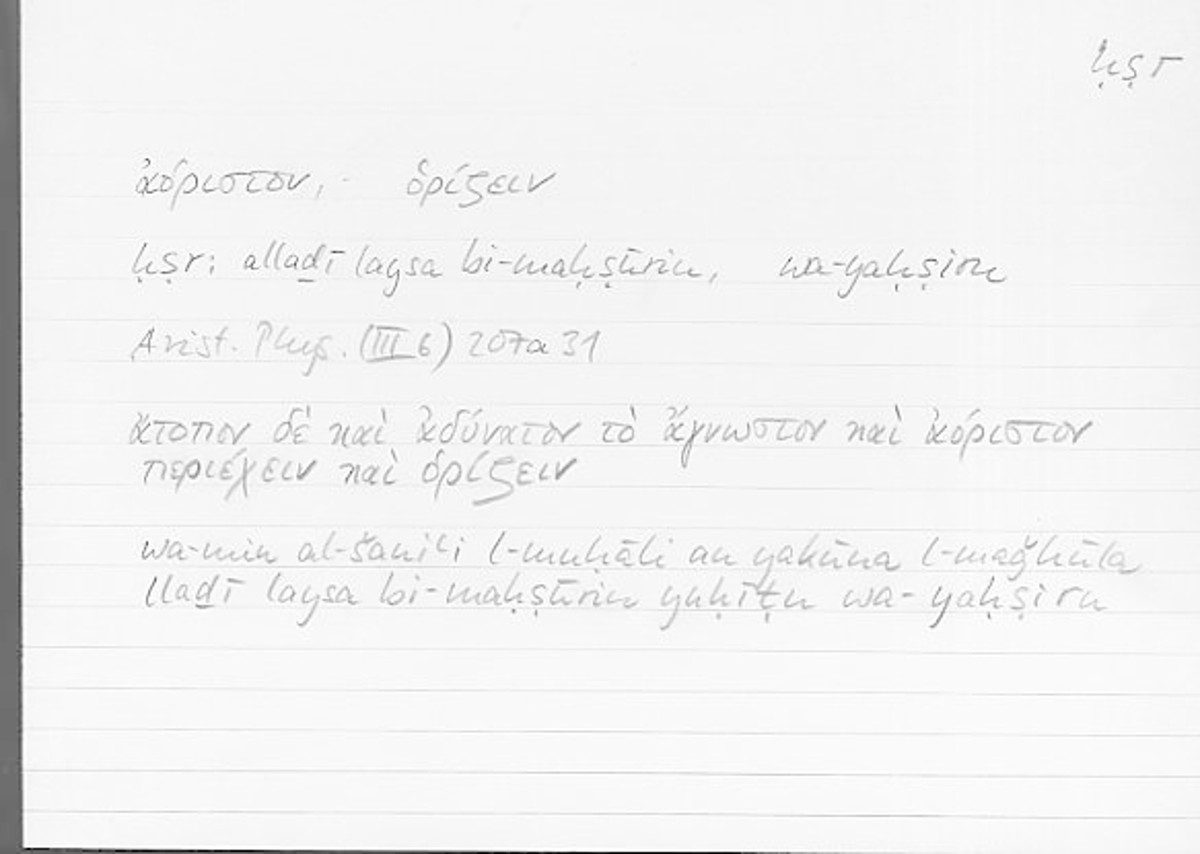 ḥṣr
ἀόριστον, ὁρίζειν
ḥṣr: allaḏī laysa bi-maḥṣūrin, wa-yaḥṣiru
Arist. Phys. (III 6) 207a 31
ἄτοπον δὲ καὶ ἀδύνατον τὸ ἄγνωστον καὶ ἀόριστον
περιέχειν καὶ ὁρίζειν
wa-min al-šaniʿi l-muḥāli an yakūna l-maǧhūla
llaḏī laysa bi-maḥṣūrin yuḥīṭu wa-yaḥṣiru